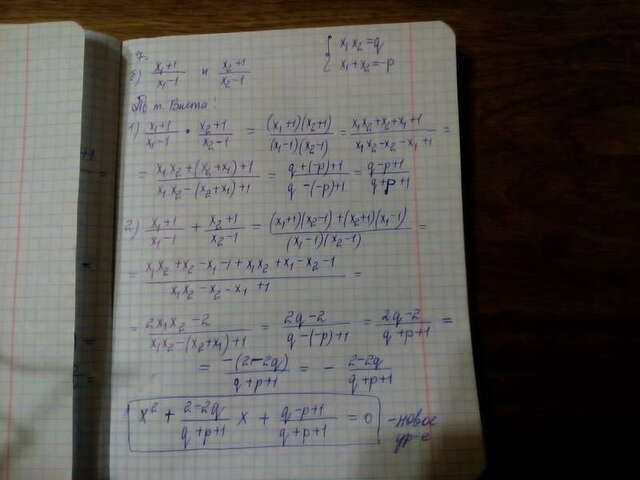 7.
б) (x₁+1)/(x₁-1) и (x₂+1)/(x₂-1)
{ x₁x₂=q
x₁+x₂=-p
По т. Виета:
1) (x₁+1)/(x₁-1) • (x₂+1)/(x₂-1) = ((x₁+1)(x₂+1))/((x₁-1)(x₂-1)) = (x₁x₂+x₂+x₁+1)/(x₁x₂-x₂-x₁+1) =
= (x₁x₂+(x₂+x₁)+1)/(x₁x₂-(x₂+x₁)+1) = (q+(-p)+1)/(q-(-p)+1) = (q-p+1)/(q+p+1)
2) (x₁+1)/(x₁-1) + (x₂+1)/(x₂-1) = ((x₁+1)(x₂-1)+(x₂+1)(x₁-1))/((x₁-1)(x₂-1)) =
= (x₁x₂+x₂-x₁-1+x₁x₂+x₁-x₂-1)/(x₁x₂-x₂-x₁+1) =
= (2x₁x₂-2)/(x₁x₂-(x₂+x₁)+1) = (2q-2)/(q-(-p)+1) = (2q-2)/(q+p+1) =
= (-(2-2q))/(q+p+1) = - (2-2q)/(q+p+1)
x² + (2-2q)/(q+p+1) x + (q-p+1)/(q+p+1) = 0 - новое
ур-е